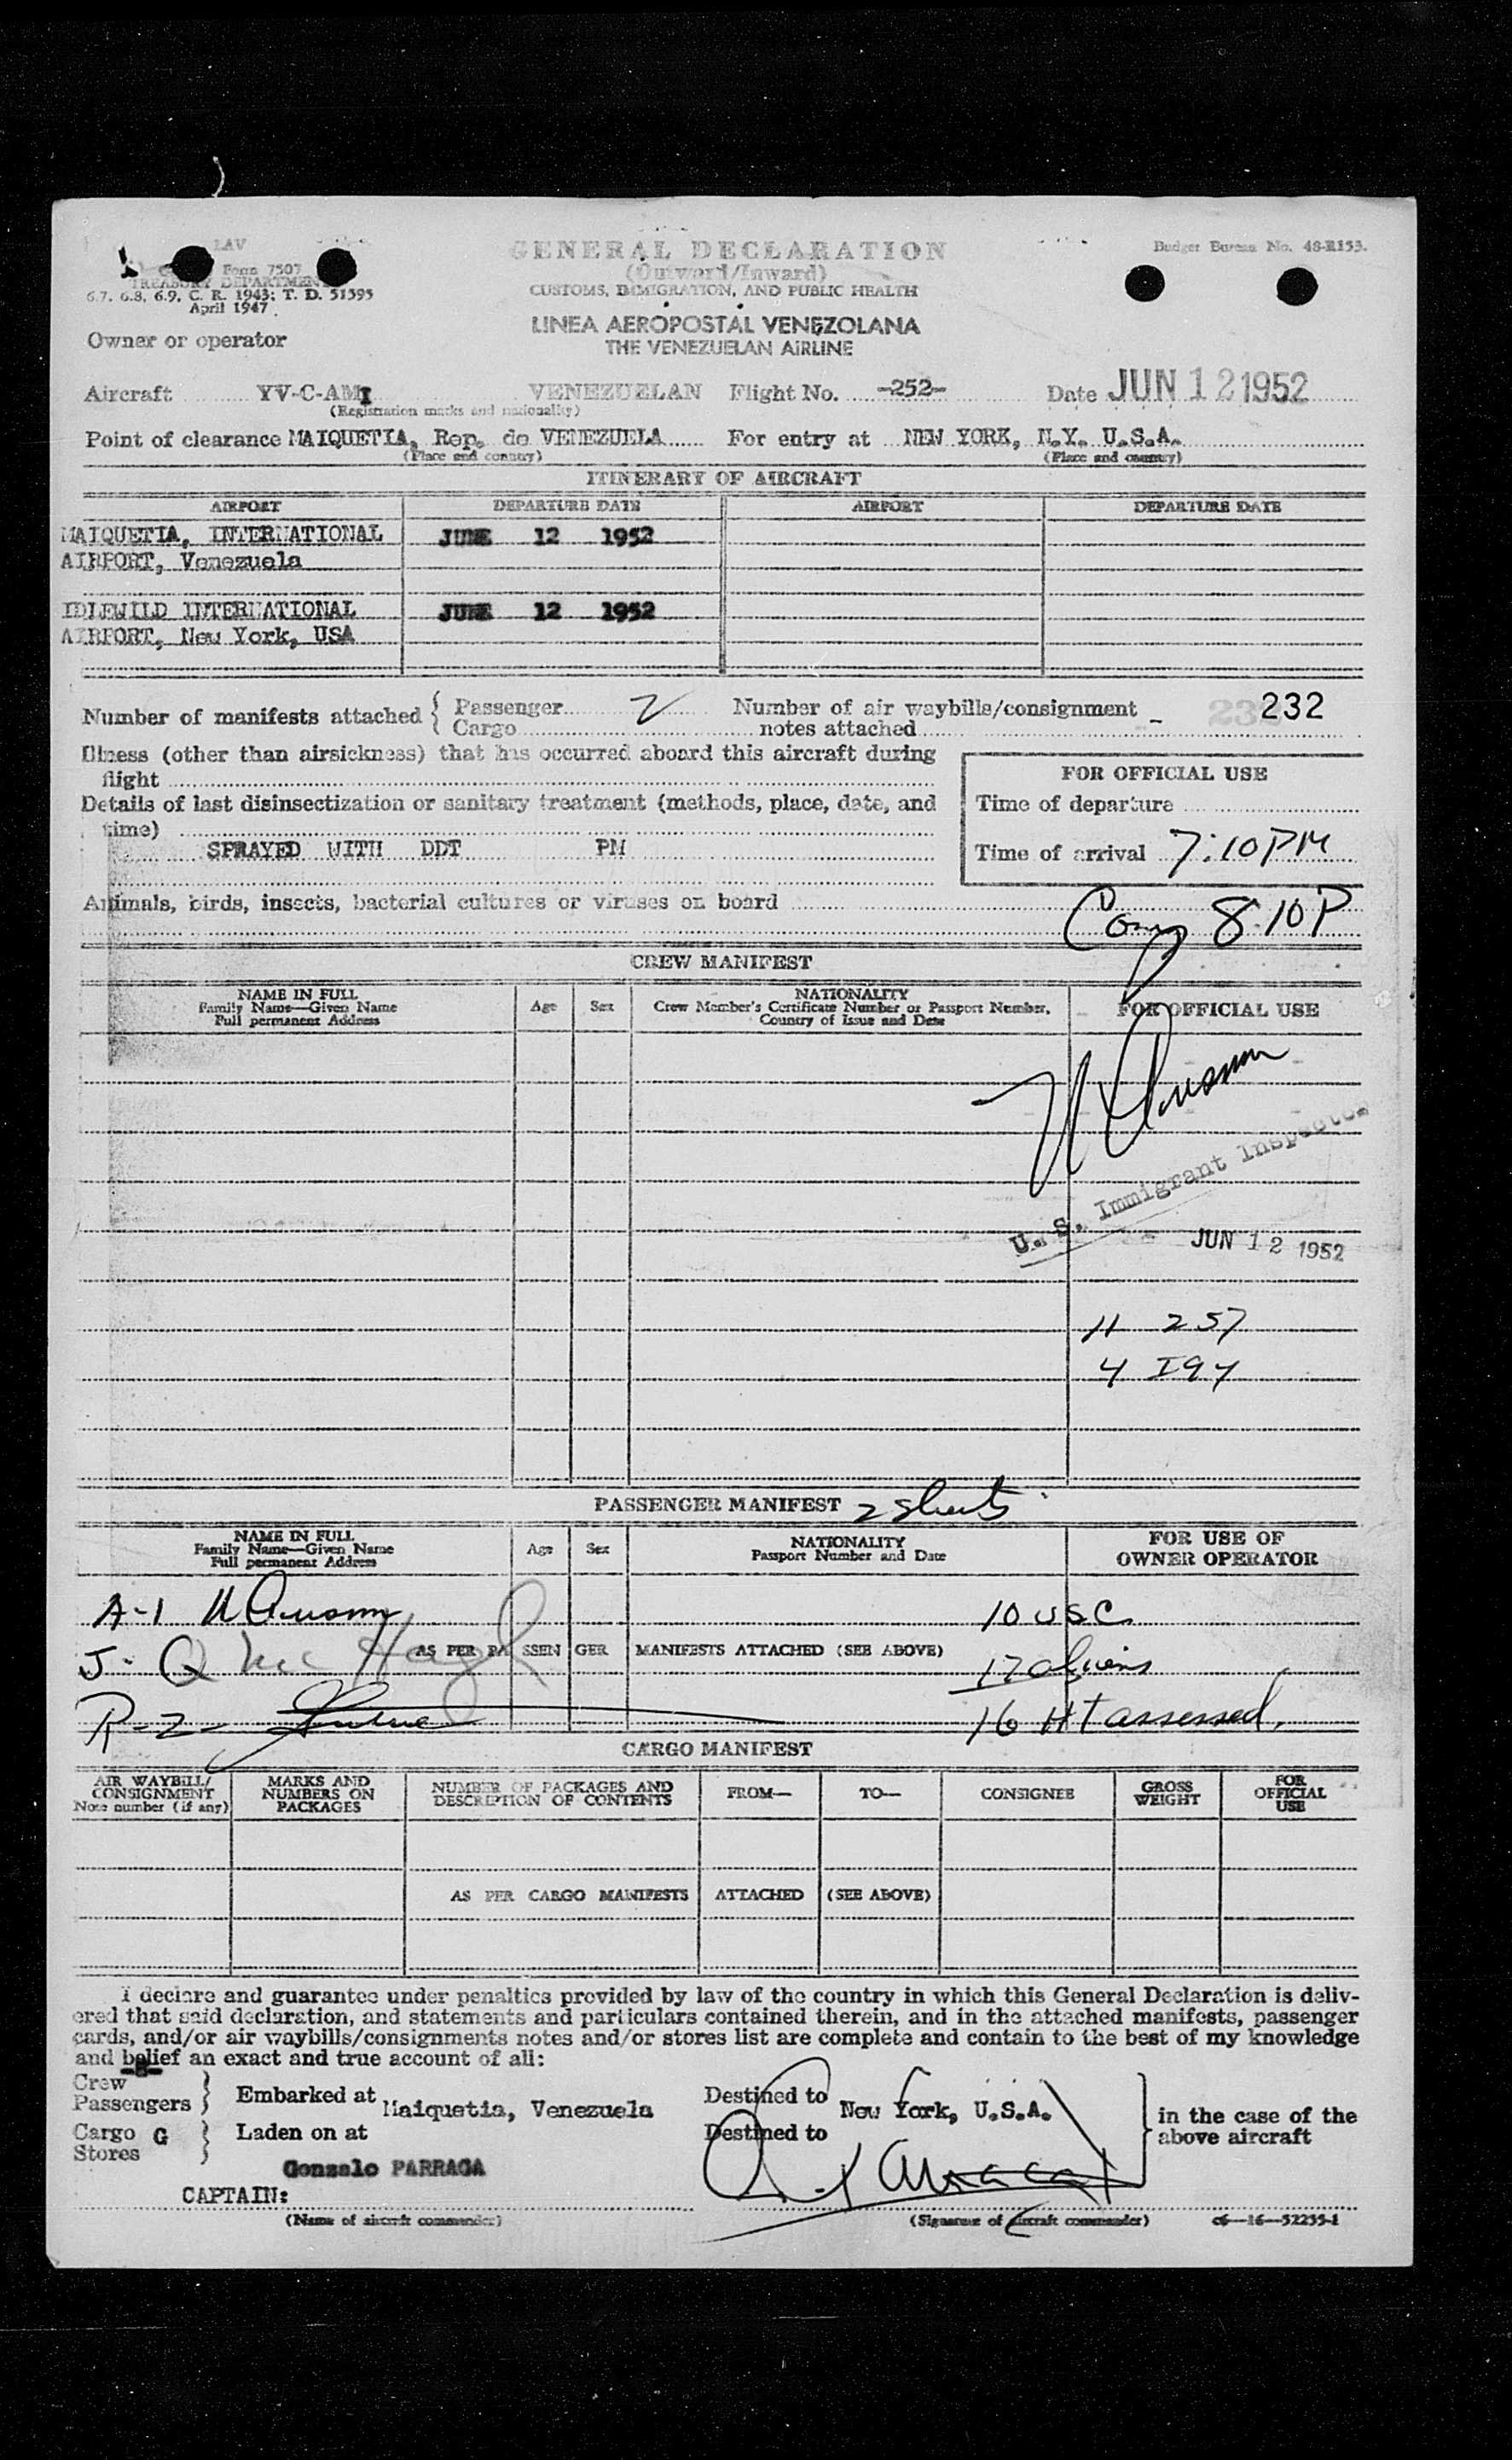 LAV
Form 7507
TREASURY DEPARTMENT
6.7, 6.8, 6.9, C. R. 1943; T. D. 51595
April 1947
GENERAL DECLARATION
(Outward/Inward)
CUSTOMS, IMMIGRATION, AND PUBLIC HEALTH
Budget Bureau No. 48-R153.
LINEA AEROPOSTAL VENEZOLANA
THE VENEZUELAN AIRLINE
Owner or operator
Aircraft YV-C-AMI VENEZUELAN Flight No. -252- Date JUN 12 1952
(Registration marks and nationality)
Point of clearance MAIQUETIA, Rep. de VENEZUELA For entry at NEW YORK, N.Y. U.S.A.
(Place and country) (Place and country)
ITINERARY OF AIRCRAFT
AIRPORT DEPARTURE DATE AIRPORT DEPARTURE DATE
MAIQUETIA, INTERNATIONAL JUNE 12 1952
AIRPORT, Venezuela
IDLEWILD INTERNATIONAL JUNE 12 1952
AIRPORT, New York, USA
Number of manifests attached { Passenger 2 Number of air waybills/consignment - 232
Cargo notes attached
Illness (other than airsickness) that has occurred aboard this aircraft during
flight
FOR OFFICIAL USE
Details of last disinsectization or sanitary treatment (methods, place, date, and
time)
Time of departure
SPRAYED WITH DDT PM
Time of arrival 7:10 PM
Animals, birds, insects, bacterial cultures or viruses on board
8:10 P
CREW MANIFEST
NAME IN FULL
Family Name—Given Name
Full permanent Address
Age Sex
NATIONALITY
Crew Member's Certificate Number or Passport Number,
Country of Issue and Date
FOR OFFICIAL USE
U. S. Immigrant Inspector
JUN 12 1952
11 257
4 I94
PASSENGER MANIFEST 2 sheets
NAME IN FULL
Family Name—Given Name
Full permanent Address
Age Sex
NATIONALITY
Passport Number and Date
FOR USE OF
OWNER OPERATOR
A-1 10 USC
J- AS PER PASSENGER MANIFESTS ATTACHED (SEE ABOVE) 17 aliens
R-2- 16 HT assessed.
CARGO MANIFEST
AIR WAYBILL/
CONSIGNMENT
Note number (if any)
MARKS AND
NUMBERS ON
PACKAGES
NUMBER OF PACKAGES AND
DESCRIPTION OF CONTENTS
FROM—
TO—
CONSIGNEE
GROSS
WEIGHT
FOR
OFFICIAL
USE
AS PER CARGO MANIFESTS ATTACHED (SEE ABOVE)
I declare and guarantee under penalties provided by law of the country in which this General Declaration is deliv-
ered that said declaration, and statements and particulars contained therein, and in the attached manifests, passenger
cards, and/or air waybills/consignments notes and/or stores list are complete and contain to the best of my knowledge
and belief an exact and true account of all:
Crew
Passengers } Embarked at Maiquetia, Venezuela Destined to New York, U.S.A.
Cargo G } Laden on at Destined to
Stores
in the case of the
above aircraft
Gonzalo PARRAGA
CAPTAIN:
(Name of aircraft commander) (Signature of aircraft commander) c6—16—52235-1